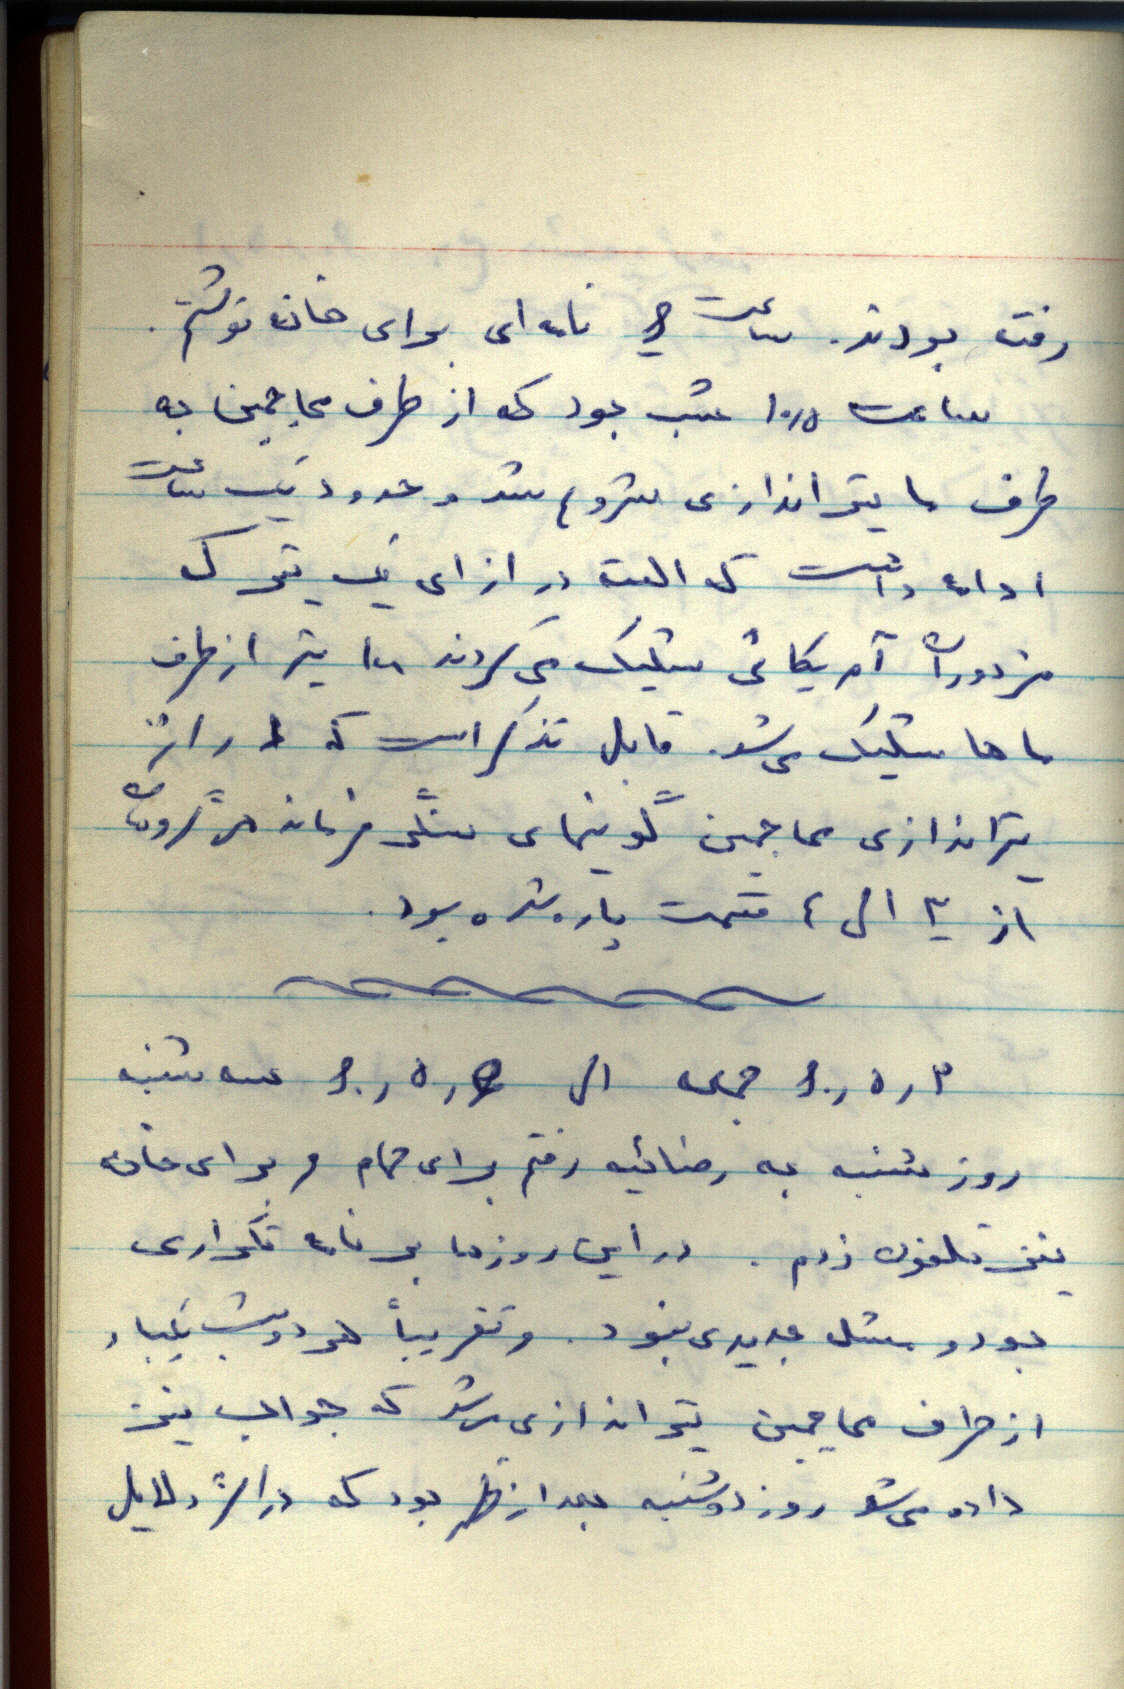 رفته بودند. ساعت ۶ نامه‌ای برای خانه نوشتم.
ساعت ۱۰٫۵ شب بود که از طرف مهاجمین به
طرف ما تیراندازی شروع شد و حدود یک ساعت
ادامه داشت که البته در ازای یک تیر که
مزدوران آمریکائی شلیک می‌کردند ۱۰۰ تیر از طرف
ماها شلیک می‌شد. قابل تذکر است که در اثر
تیراندازی مهاجمین گونیهای سنگر فرمانده گروهان
از ۳ الی ٤ قسمت پاره شده بود.
۳٫۵٫۶۰ جمعه الی ۶٫۵٫۶۰ سه شنبه
روز شنبه به رضائیه رفتم برای حمام و برای خانه
نیز تلفون زدم. در این روزها برنامه تکراری
بود و مسئله جدیدی نبود. و تقریباً هر دو شب یکبار
از طرف مهاجمین تیراندازی می‌شد که جواب نیز
داده می‌شد روز دوشنبه بعد از ظهر بود که در اثر دلایل